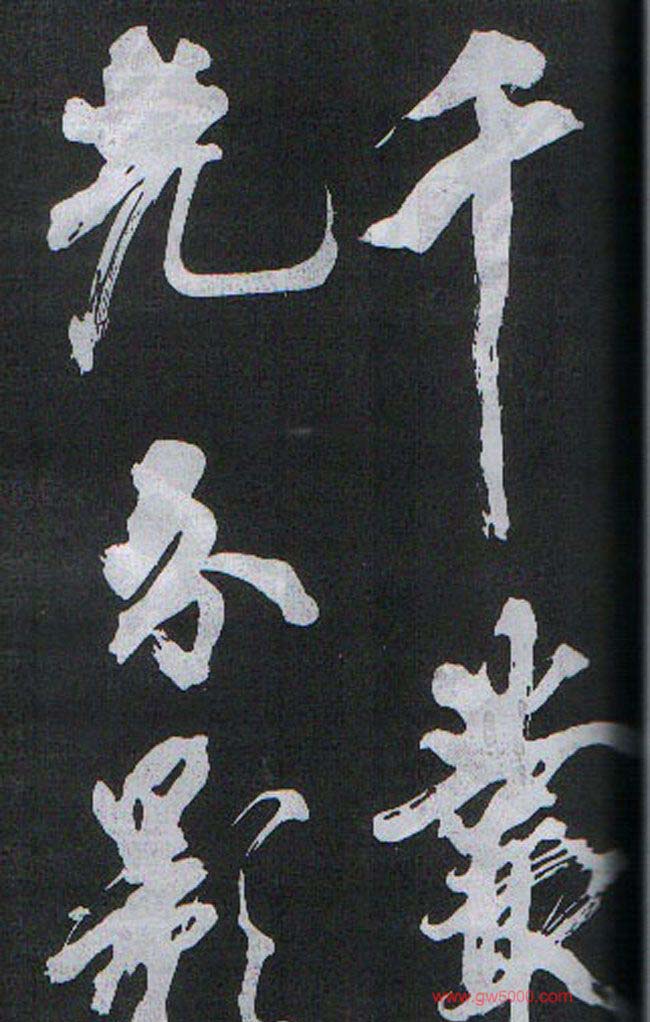 千叢
光分影
www.gw5000.com